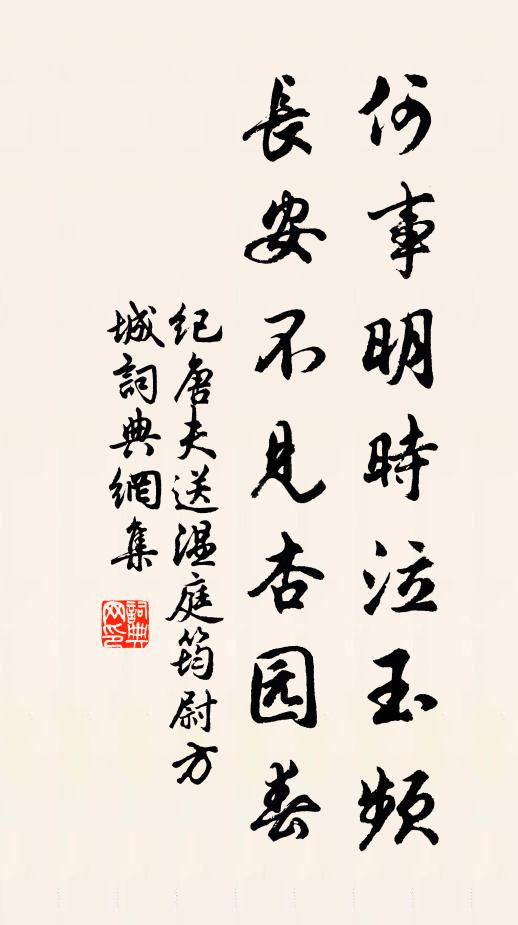 何事明時泣玉頻
長安不見杏园春
纪唐夫送温庭筠尉方
城詞典網集
詞典网印